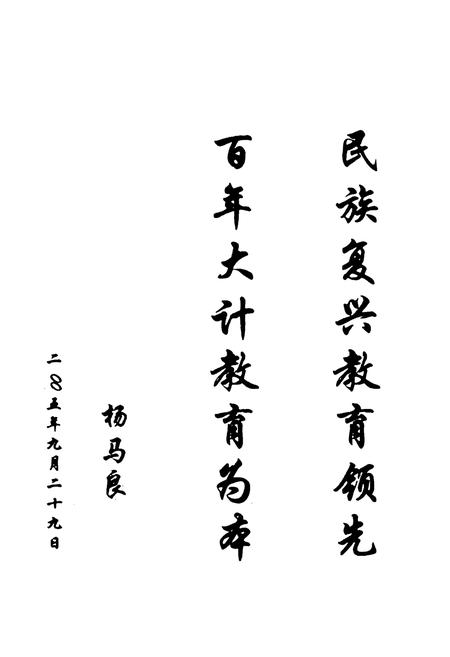 民族复兴教育领先
百年大计教育为本
杨马良
二〇〇五年九月二十九日